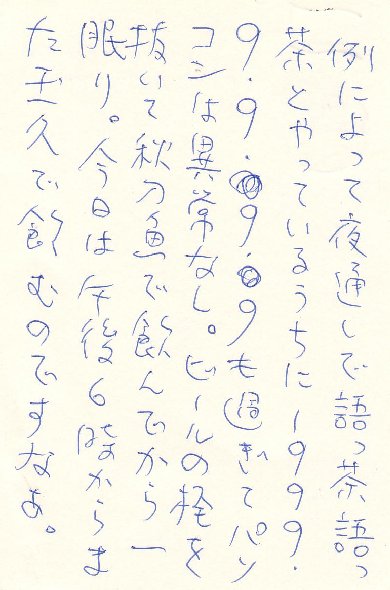 例によって夜通しで語っ茶語っ
茶とやっているうちに1999.
9.9.9.9も過ぎてパソ
コンは異常なし。ビールの栓を
抜いて秋刀魚で飲んでから一
眠り。今日は午後6時からま
た玉久で飲むのですなあ。